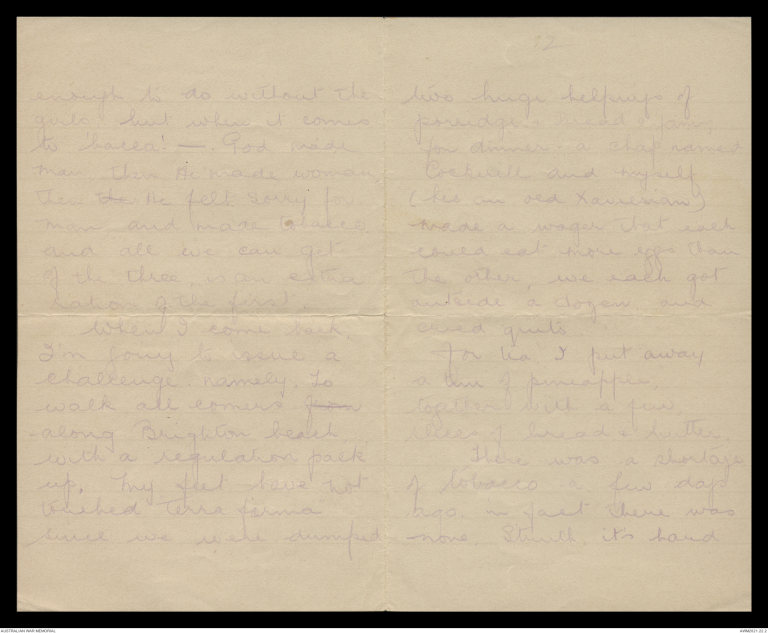 22
two huge helpings of
porridge & bread & jam,
for dinner a chap named
Cockwell and myself
(hes an old Xavierian)
made a wager that each
could eat more eggs than
the other, we each got
outside a dozen and
cried quits.
For tea I put away
a tin of pineapple,
together with a few
slices of bread & butter.
There was a shortage
of tobacco a few days
ago, in fact there was
none. Struth, it's hard
enough to do without the
girls, but when it comes
to 'bacca! —. God made
man, then He made woman
then the He felt sorry for
man, and made tobacco
and all we can get
of the three, is an extra
ration of the first.
When I come back,
I'm going to issue a
challenge. namely. To
walk all comers from
along Brighton beach,
with a regulation pack
up. My feet have not
touched Terra firma
since we were dumped
AUSTRALIAN WAR MEMORIAL
AWM2021.22.2